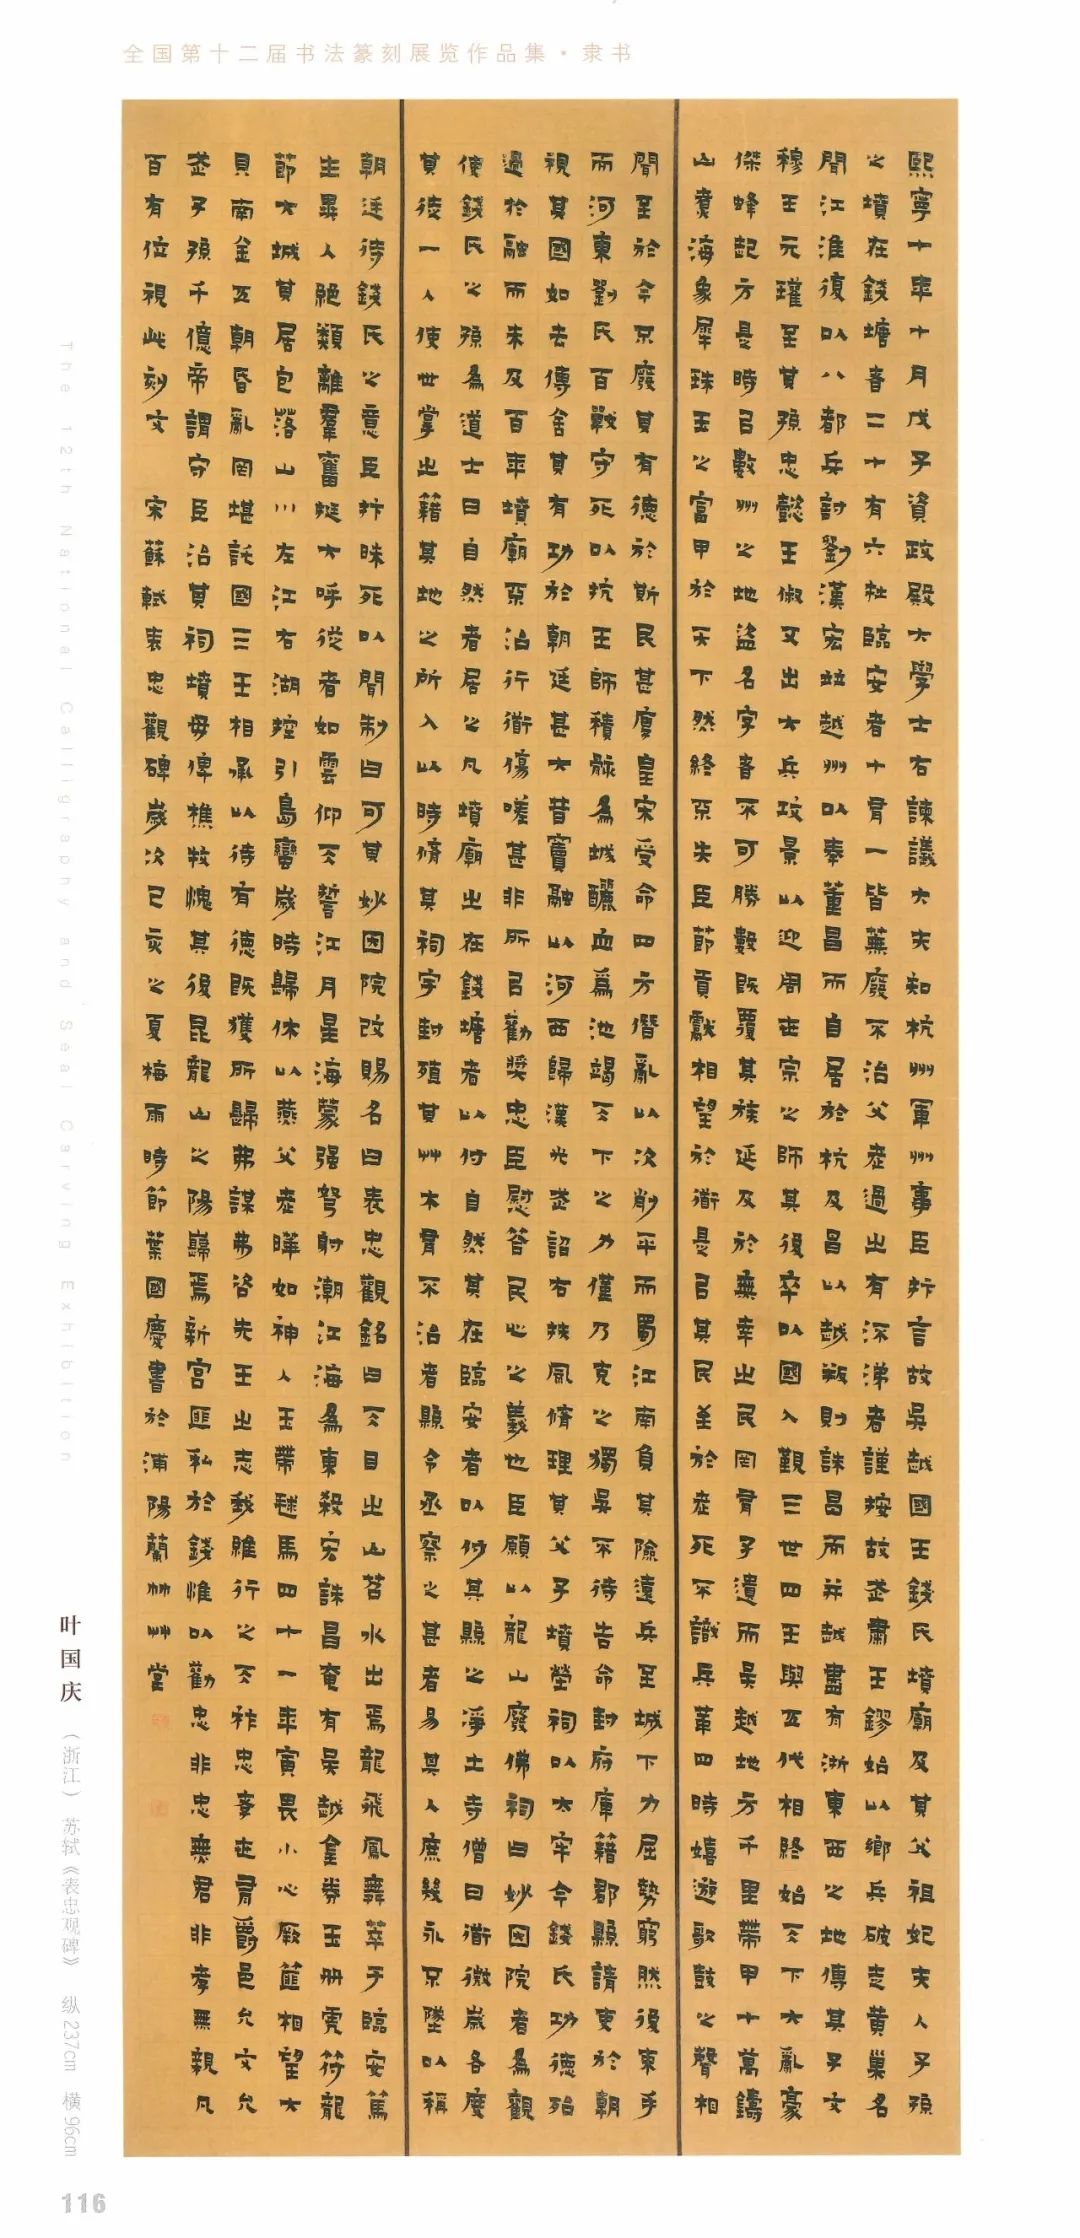 全国第十二届书法篆刻展览作品集·隶书
熙寧十年十月戊子資政殿大學士右諫議大夫知杭州軍州事臣抃言故吳越國王錢氏墳廟及其父祖妃夫人子孫
之墳在錢塘者二十有六在臨安者十有一皆蕪廢不治父老過之有流涕者謹按故武肅王鏐始以鄉兵破走黃巢名
聞江淮復以八都兵討劉漢宏並越州以奉董昌而自居於杭及昌以越叛則誅昌而并越盡有浙東西之地傳其子文
穆王元瓘至其孫忠懿王俶又出大兵攻景以迎周世宗之師其後卒以國入覲三世四王與五代相終始天下大亂豪
傑蜂起方是時以數州之地盜名字者不可勝數既覆其族延及於無辜之民罔有孑遺而吳越地方千里帶甲十萬鑄
山煮海象犀珠玉之富甲於天下然終不失臣節貢獻相望於道是以其民至於老死不識兵革四時嬉遊歌鼓之聲相
聞至於今不廢其有德於斯民甚厚皇宋受命四方僭亂以次削平而蜀江南負其險遠兵至城下力屈勢窮然後束手
而河東劉氏百戰守死以抗王師積骸為城釃血為池竭天下之力僅乃克之獨吳不待告命封府庫籍郡縣請吏於朝
視其國如去傳舍其有功於朝廷甚大昔竇融以河西歸漢光武詔右扶風脩理其父子墳塋祠以太牢今錢氏功德殆
過於融而未及百年墳廟不治行道傷嗟甚非所以勸獎忠臣慰答民心之義也臣願以龍山廢佛祠曰妙因院者為觀
使錢氏之孫為道士曰自然者居之凡墳廟之在錢塘者以付自然其在臨安者以付其縣之淨土寺僧曰道微歲各度
其徒一人使世掌之籍其地之所入以時脩其祠宇封殖其艸木有不治者縣令丞察之甚者易其人庶幾永不墜以稱
朝廷待錢氏之意臣抃昧死以聞制曰可其妙因院改賜名曰表忠觀銘曰天目之山苕水出焉龍飛鳳舞萃于臨安篤
生異人絕類離羣奮挺大呼從者如雲仰天誓江月星海蒙强弩射潮江海為東殺宏誅昌奄有吳越金券玉冊虎符龍
節大城其居包落山川左江右湖控引島蠻歲時歸休以燕父老曄如神人玉帶毬馬四十一年寅畏小心厥篚相望大
貝南金五朝昏亂罔堪託國三王相承以待有德既獲所歸弗謀弗咨先王之志我維行之天祚忠孝世有爵邑允文允
武子孫千億帝謂守臣治其祠墳毋俾樵牧愧其後昆龍山之陽巋焉新宮匪私於錢惟以勸忠非忠無君非孝無親凡
百有位視此刻文 宋蘇軾表忠觀碑歲次己亥之夏梅雨時節葉國慶書於浦陽蘭竹艸堂
The 12th National Calligraphy and Seal Carving Exhibition
叶国庆 （浙江） 苏轼《表忠观碑》 纵237cm 横96cm
116